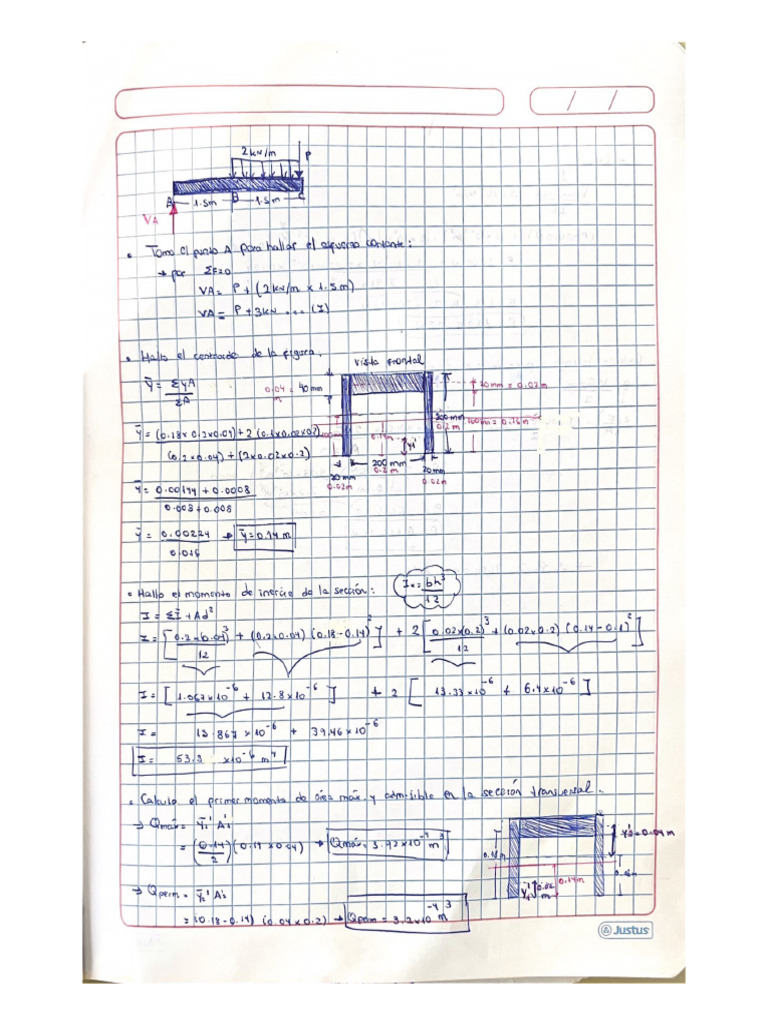 / /
2kN/m P
A 1.5m B 1.5m C
VA
• Tomo el punto A para hallar el esfuerzo cortante:
→ por ΣF=0
VA= P + (2kN/m x 1.5m)
VA= P + 3kN ... (I)
• Hallo el centroide de la figura.
vista frontal
ȳ = ΣyA / ΣA
0.04 m = 40 mm
20mm = 0.02m
ȳ = (0.18x0.2x0.04) + 2(0.1x0.02x0.2) / (0.2x0.04) + (2x0.02x0.2)
200 mm 0.2m
0.14m
100m = 0.16m
y1'
20mm 0.02m
200 mm 0.2m
20mm 0.02m
ȳ = 0.00144 + 0.0008 / 0.008 + 0.008
ȳ = 0.00224 / 0.016 → ȳ = 0.14 m
• Hallo el momento de inercia de la sección: Ix = bh³ / 12
I = ΣĪ + Ad²
I = [0.2x(0.04)³ / 12 + (0.2x0.04) (0.18-0.14)²] + 2[0.02x(0.2)³ / 12 + (0.02x0.2) (0.14-0.1)²]
I = [1.067x10⁻⁶ + 12.8x10⁻⁶] + 2[13.33x10⁻⁶ + 6.4x10⁻⁶]
I = 13.867x10⁻⁶ + 39.46x10⁻⁶
I = 53.3 x10⁻⁶ m⁴
• Calculo el primer momento de área máx. y admisible en la sección transversal.
→ Qmáx = ȳ1' A'1
= (0.14 / 2) (0.14x0.04) → Qmáx = 3.92x10⁻⁴ m³
ȳ2' = 0.04 m
0.14m
→ Qperm = ȳ2' A'2
= (0.18-0.14) (0.04x0.2) → Qperm = 3.2x10⁻⁴ m³
Justus